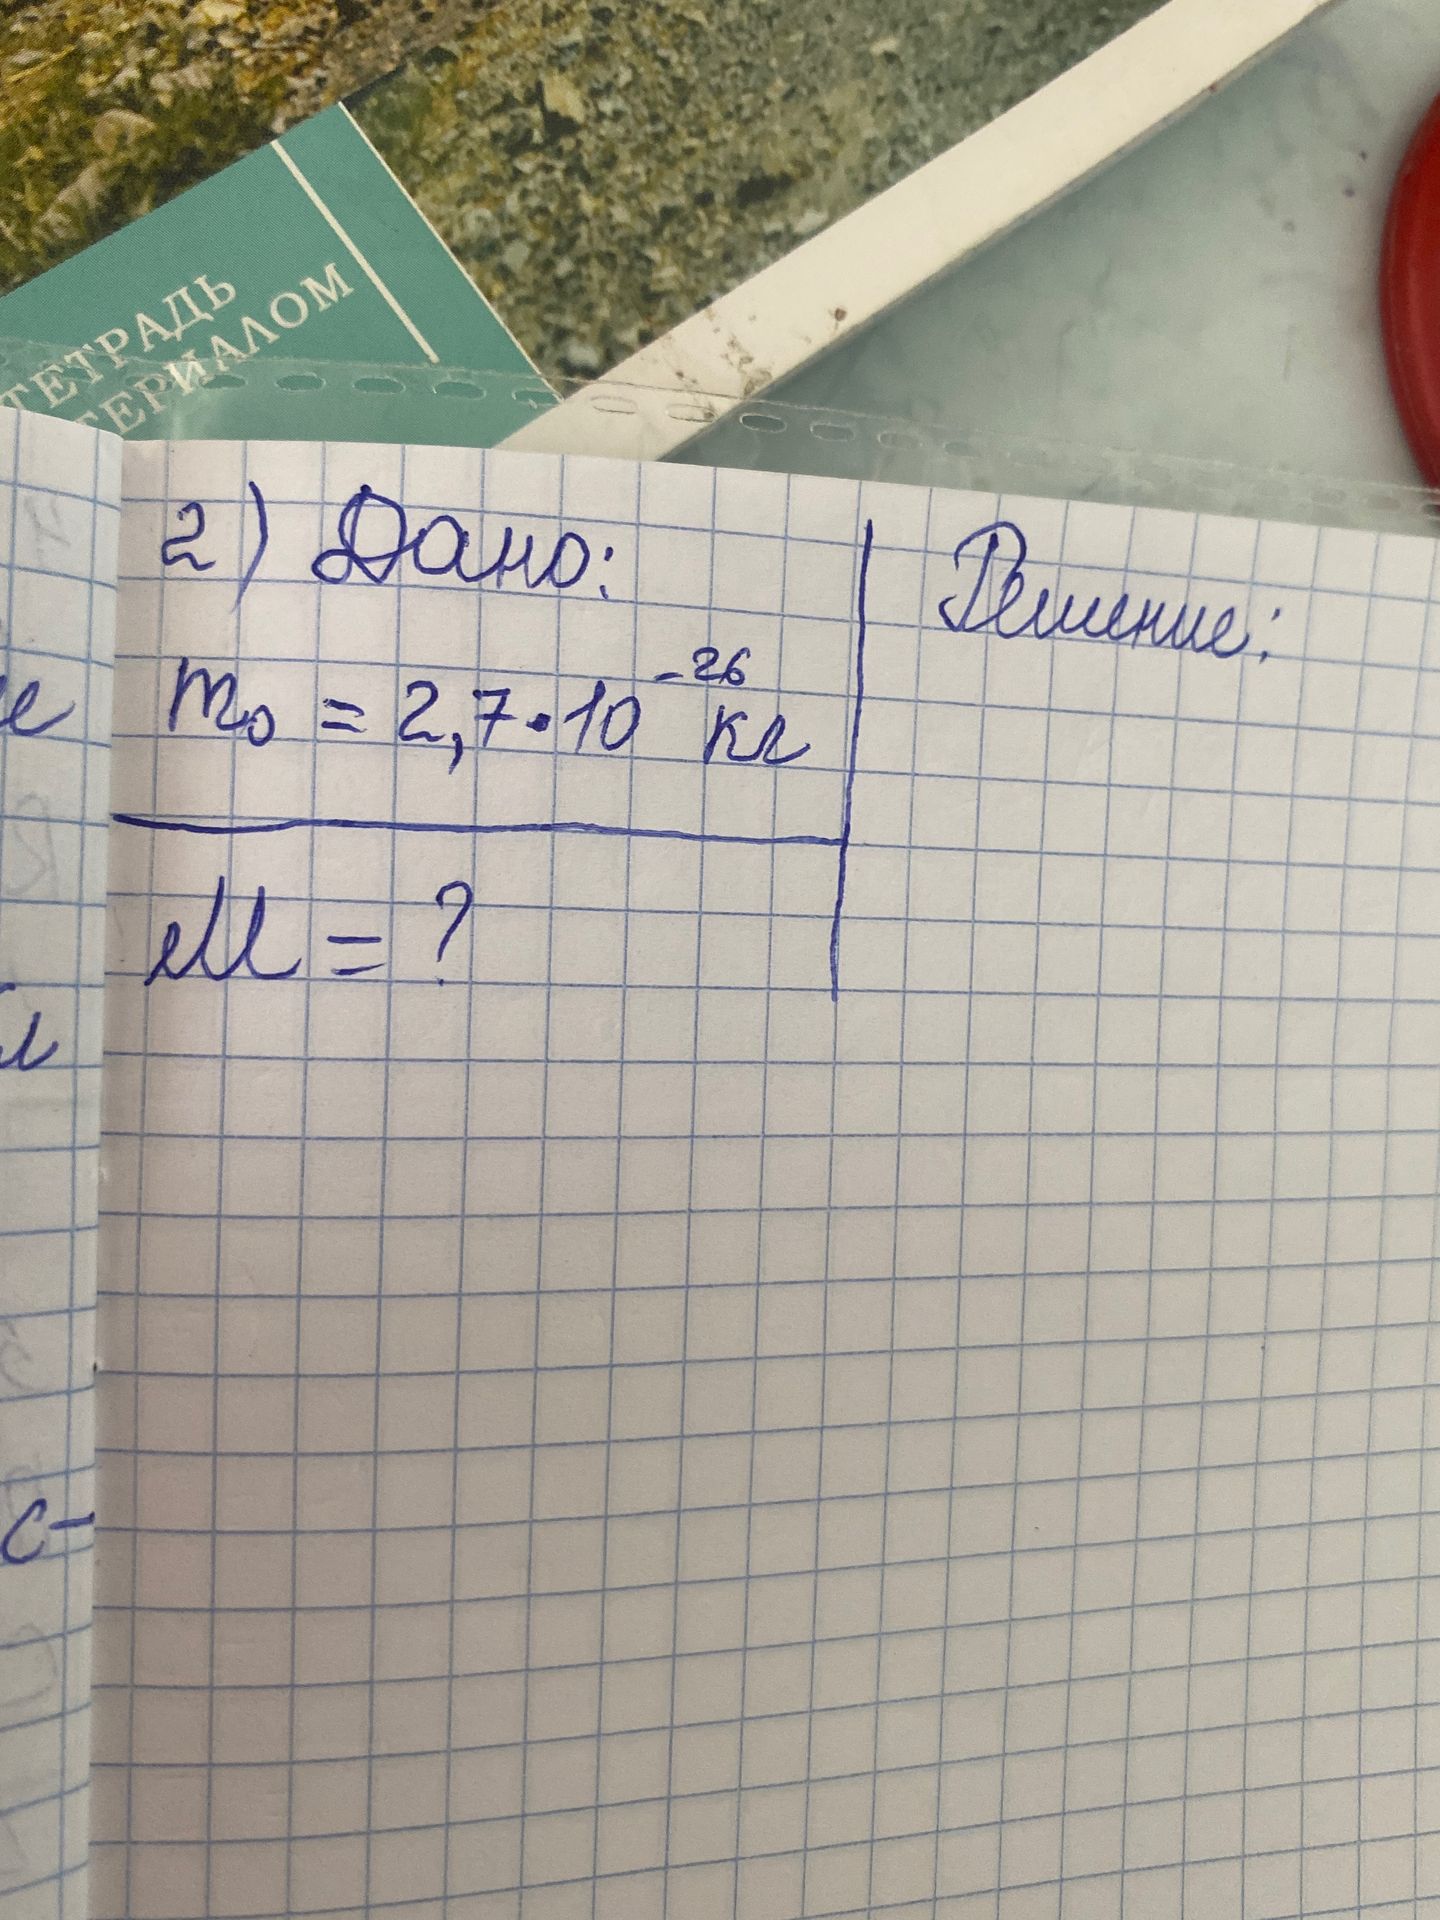 ТЕТРАДЬ
ТЕРИАЛОМ
2) Дано:
m₀ = 2,7·10⁻²⁶ кг
M = ?
Решение:
с-